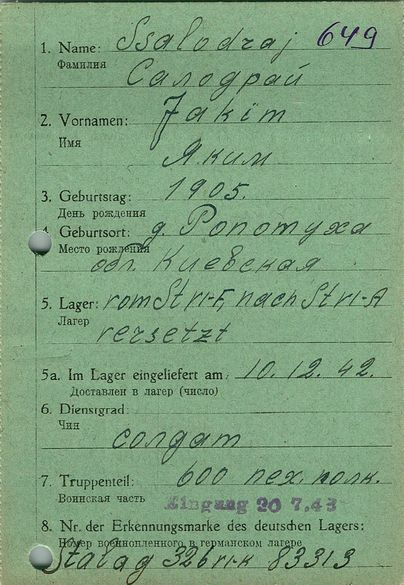 1. Name: Ssalodraj 649
Фамилия
Салодрай
2. Vornamen: Jakim
Имя
Яким
3. Geburtstag: 1905.
День рождения
4. Geburtsort: д. Ропотуха
Место рождения
обл. Киевская
5. Lager: vom Str VI-F, nach Str VI-A
Лагер
versetzt
5a. Im Lager eingeliefert am: 10.12.42.
Доставлен в лагер (число)
6. Dienstgrad:
Чин
солдат
7. Truppenteil: 600 пех. полк.
Воинская часть
Eingang 20 7.43
8. Nr. der Erkennungsmarke des deutschen Lagers:
Номер военнопленного в германском лагере
Stalag 326 VI-K 83313